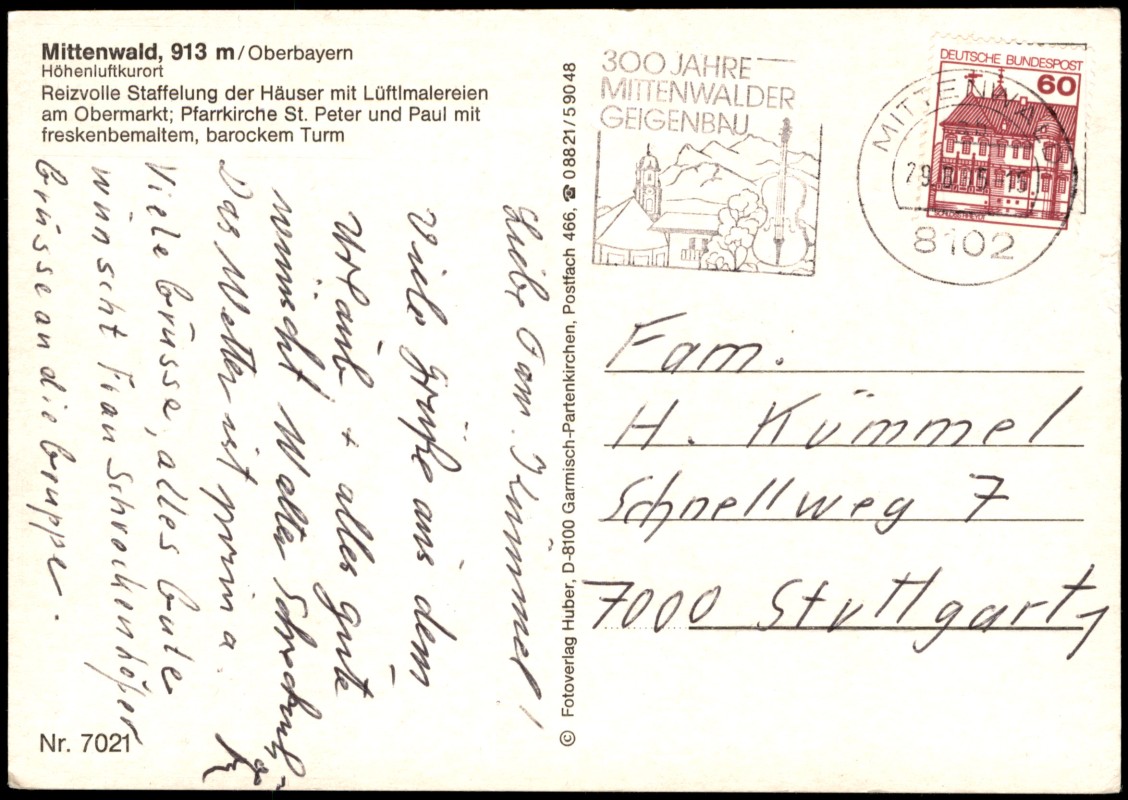 Mittenwald, 913 m/Oberbayern
Höhenluftkurort
Reizvolle Staffelung der Häuser mit Lüftlmalereien
am Obermarkt; Pfarrkirche St. Peter und Paul mit
freskenbemaltem, barockem Turm
Liebe Fam. Kümmel!
Viele Grüße aus dem
Urlaub + alles gute
wünscht Walter
Das Wetter ist prima.
Viele Grüsse, alles Gute
wünscht Frau Schrockenhöfer
Grüsse an die Gruppe.
Nr. 7021
© Fotoverlag Huber, D-8100 Garmisch-Partenkirchen, Postfach 466, ☎ 08821/59048
300 JAHRE
MITTENWALDER
GEIGENBAU
MITTENWALD
8102
DEUTSCHE BUNDESPOST
60
Fam.
H. Kümmel
Schnellweg 7
7000 Stuttgart 1